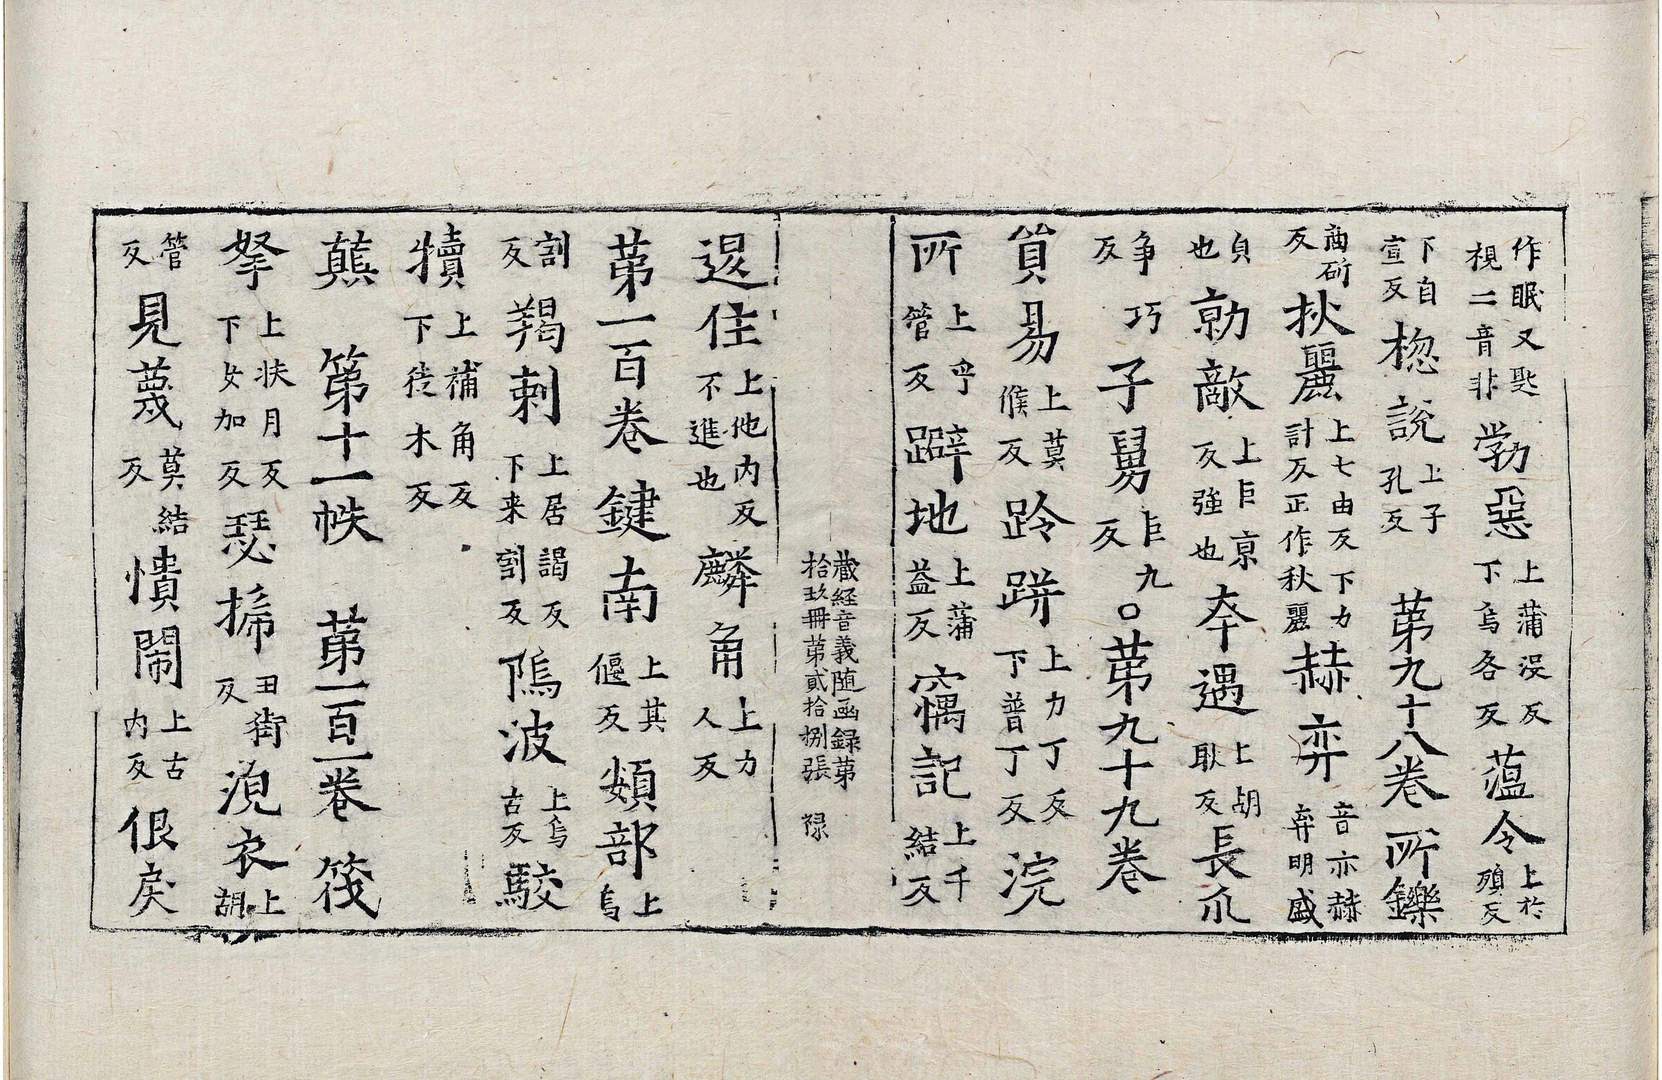 作眠又匙梘二音非勃惡上蒲没反下烏各反薀令上於殞反
下自宣反㧾説上子孔反　第九十八卷　所鑠
商斫反杕麗上七由反下力計反正作秋麗赫弈音亦赫弈明盛
貞也勍敵上巨亰反強也夲遇上胡耿反長爪
争巧反　子舅巨九反○第九十九卷
貿易上莫候反跉跰上力丁反下普丁反浣
所上乎管反躃地上蒲益反竊記上千結反
藏経音義随函録第拾玖冊第貳拾捌張　禄
退住上他内反不進也麟角上力人反
第一百卷　鍵南上其偃反頞部上烏
割反羯剌上居謁反下来割反隖波上烏古反駮
犢上補角反下徒木反
蘓　第十一帙　第一百一卷　筏
拏上扶月反下女加反瑟搋丑街反浣衣上胡
管反見蔑莫結反憒閙上古内反佷戾